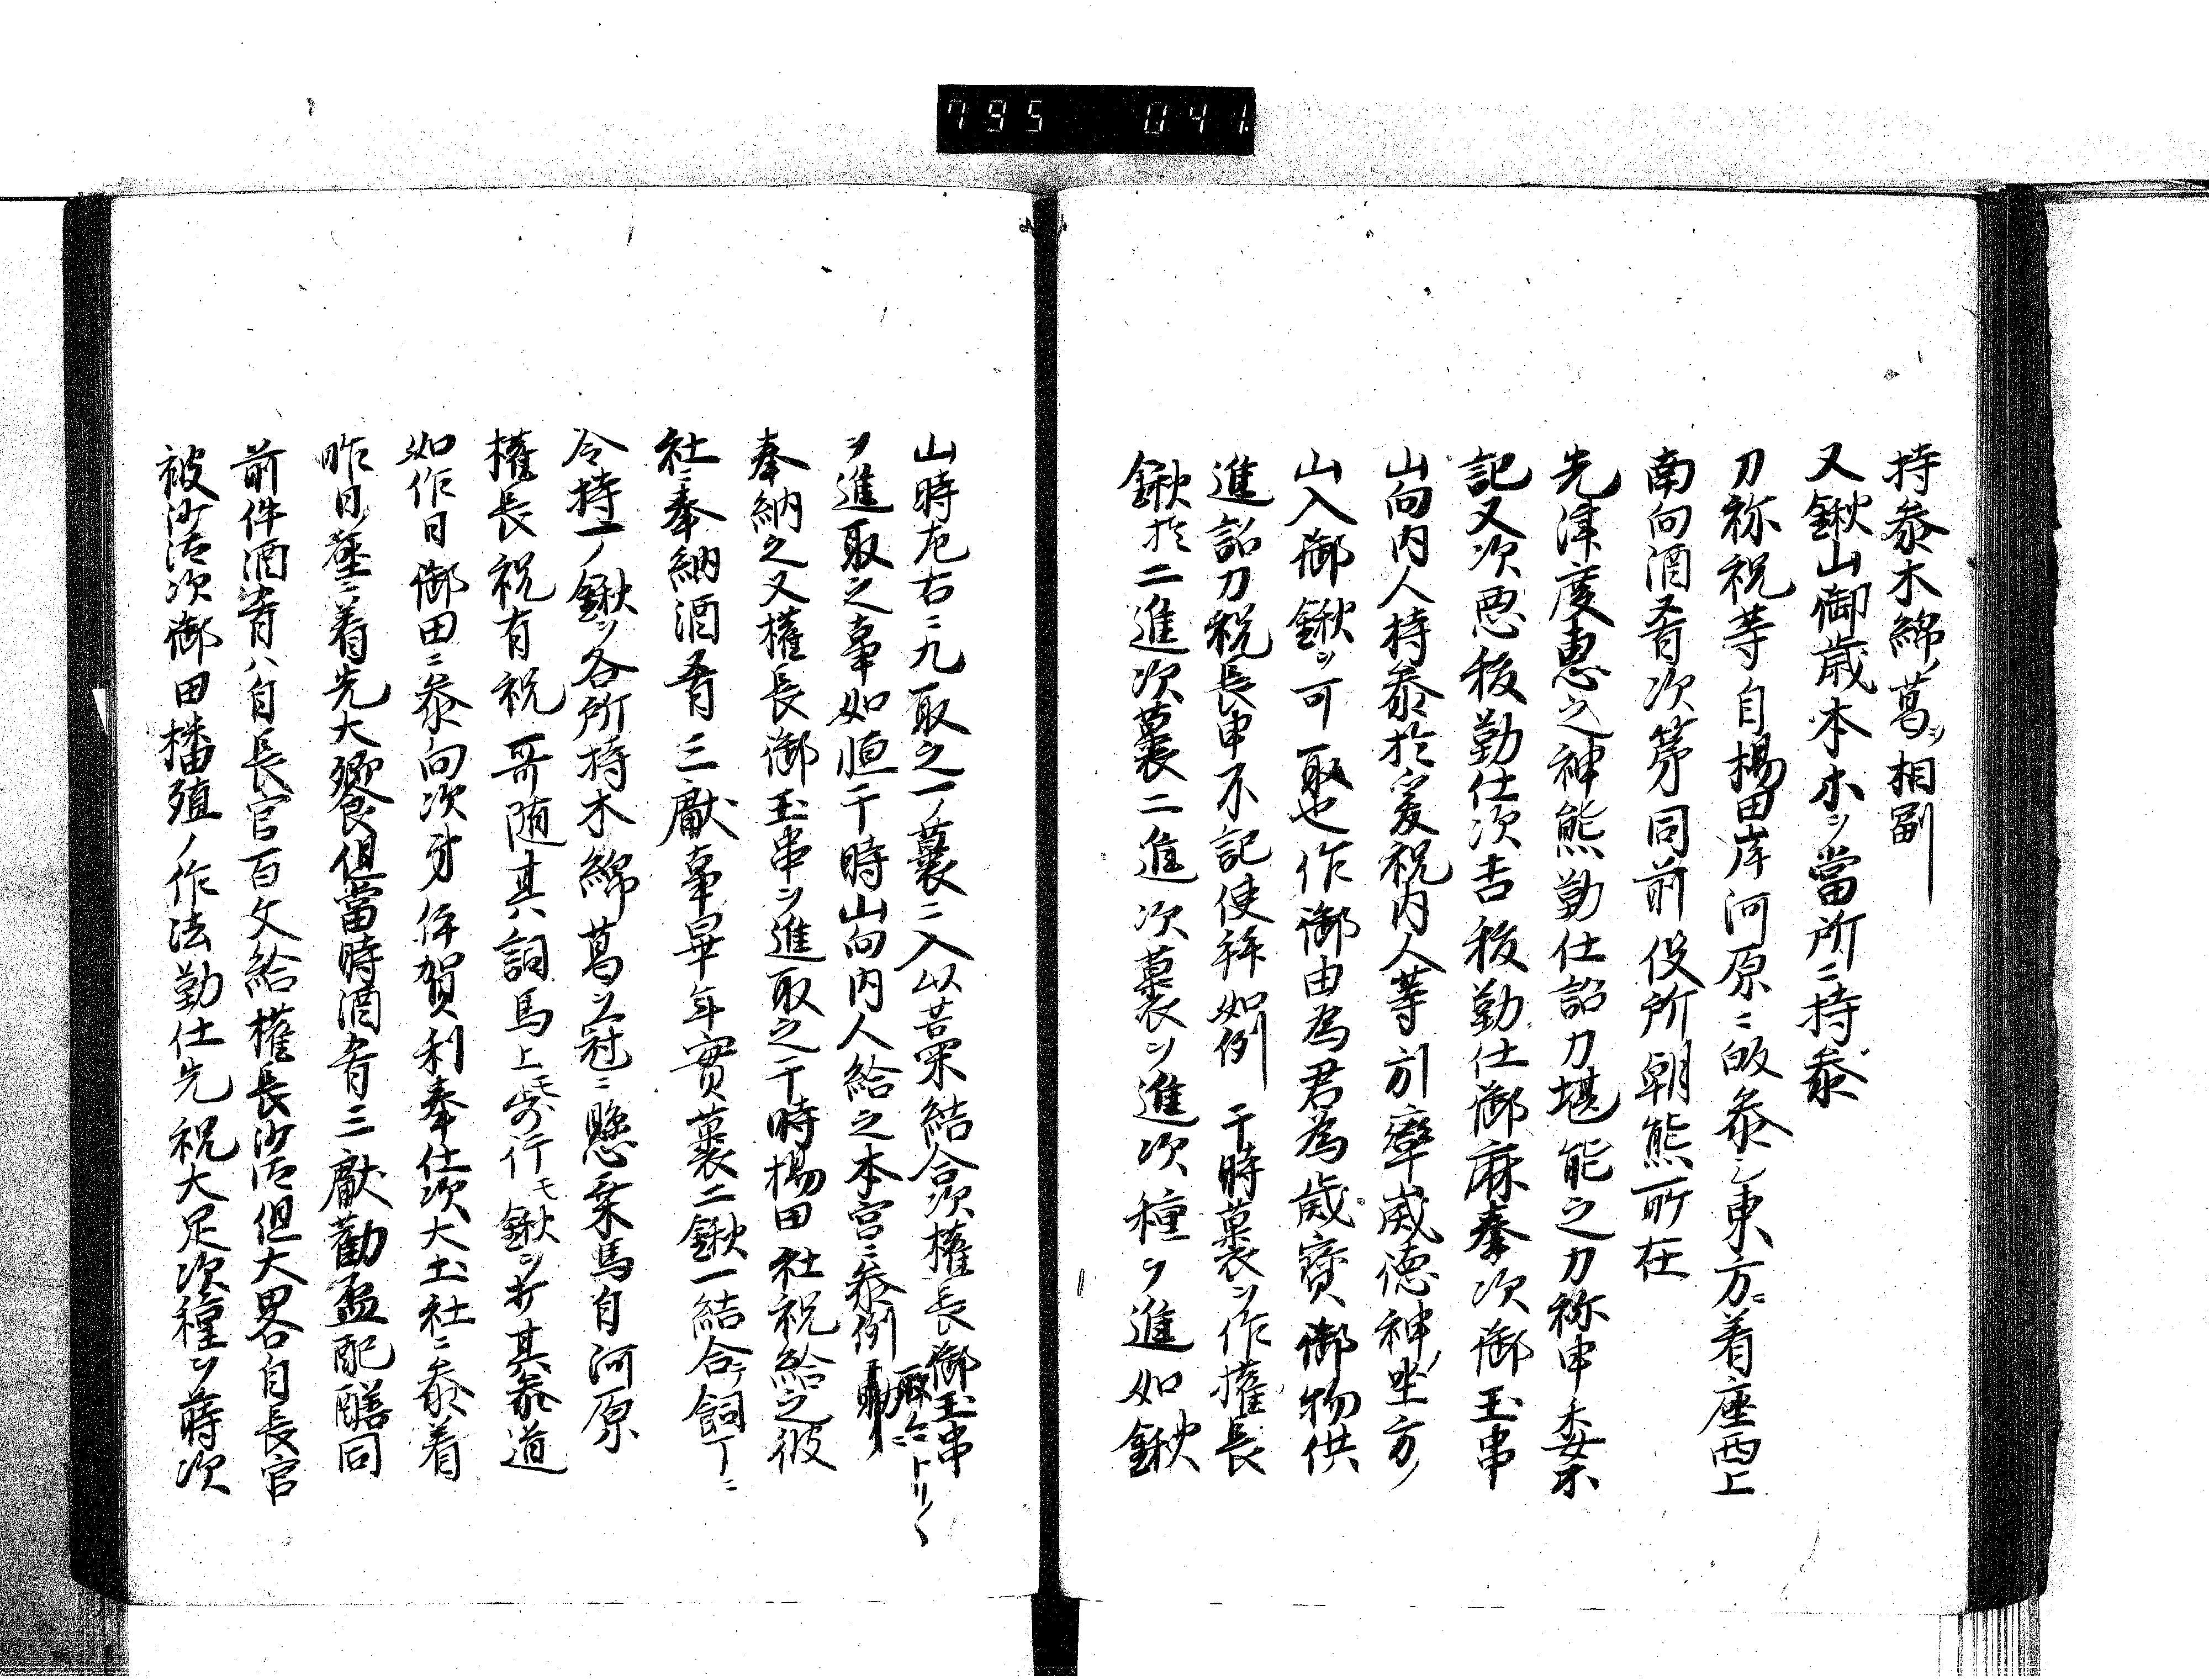 795 041.
持参木綿ノ葛ヲ相副
又鍬山御歳本木ヲ當所ニ持参
刀祢祝等自楊田岸河原ニ皈参シ東方ニ着座西上
南向酒肴次第同前役所朝熊所在
先津度惠之神態勤仕詔刀堪能之刀祢申
記又次悪秡勤仕次吉秡勤仕御麻奏次御玉串
山向内人持参於爰祝内人等引率威徳神坐方ノ
山入御鍬ヲ可取也作御由為君為歳寳御物供
進詔刀祝長申不記使拜如例 于時蓑ヲ作權長
鍬於二進次蓑二進次蓑ヲ進次種ヲ進如鍬
山時左右ニ九取之一ノ蓑ニ入以苔結合次權長御玉串
ヲ進取之事如恒于時山向内人給之本宮ニ参例
奉納之又權長御玉串ヲ進取之于時楊田社祝給之彼
社ニ奉納酒肴三献事畢年實蓑二鍬一結合飼丁ニ
令持一ノ鍬ヲ各所持木綿葛ヲ冠ニ懸乗馬自河原
權長祝有祝哥随其詞馬上行モ鍬ヲ其参道
如作日御田ニ参向次伊賀利奉仕次大土社ニ参着
昨日座ニ着先大饗但當時酒肴三献勸盃配膳同
前件酒肴ハ自長官百文給權長沙汰但大畧自長官
被沙汰次御田播殖ノ作法勤仕先祝大足次種ヲ蒔次